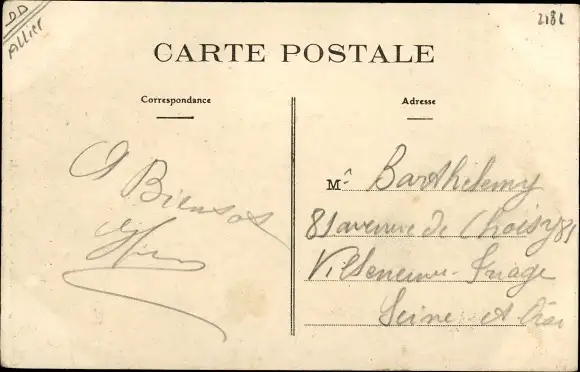 DD
Allier
2182
CARTE POSTALE
Correspondance
Adresse
A Bientot
Mr Barthelemy
81 avenue de Choisy 81
Villeneuve-
Seine et